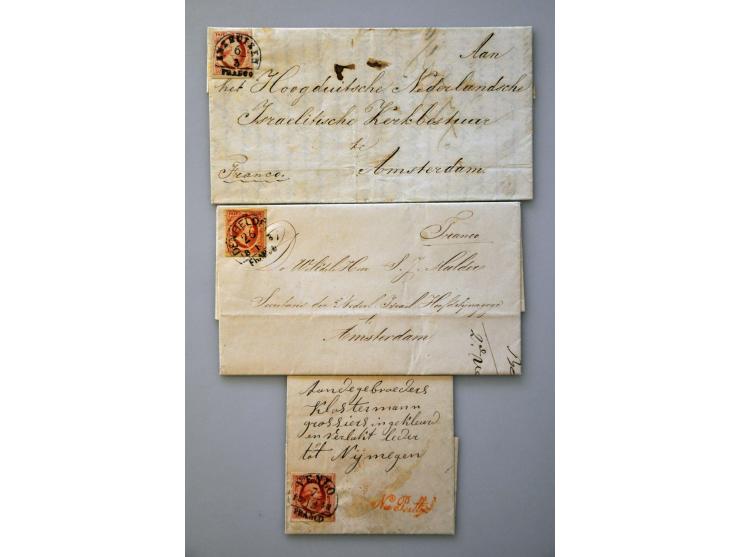 ENKHUIZEN
6
3
FRANCO
Aan
het Hoogduitsche Nederlandsche
Israelitische Kerkbestuur
te
Amsterdam.
Franco.
26
FRANCO
Franco
De WelEd. Heer S. J. Mulder
Secretaris der Nederl. Israel. Hoofdsynagoge
te
Amsterdam
Aan de gebroeders
Klostermann
grossiers in gekleurd
en verlakt Leder
tot Nijmegen
VENLO
FRANCO